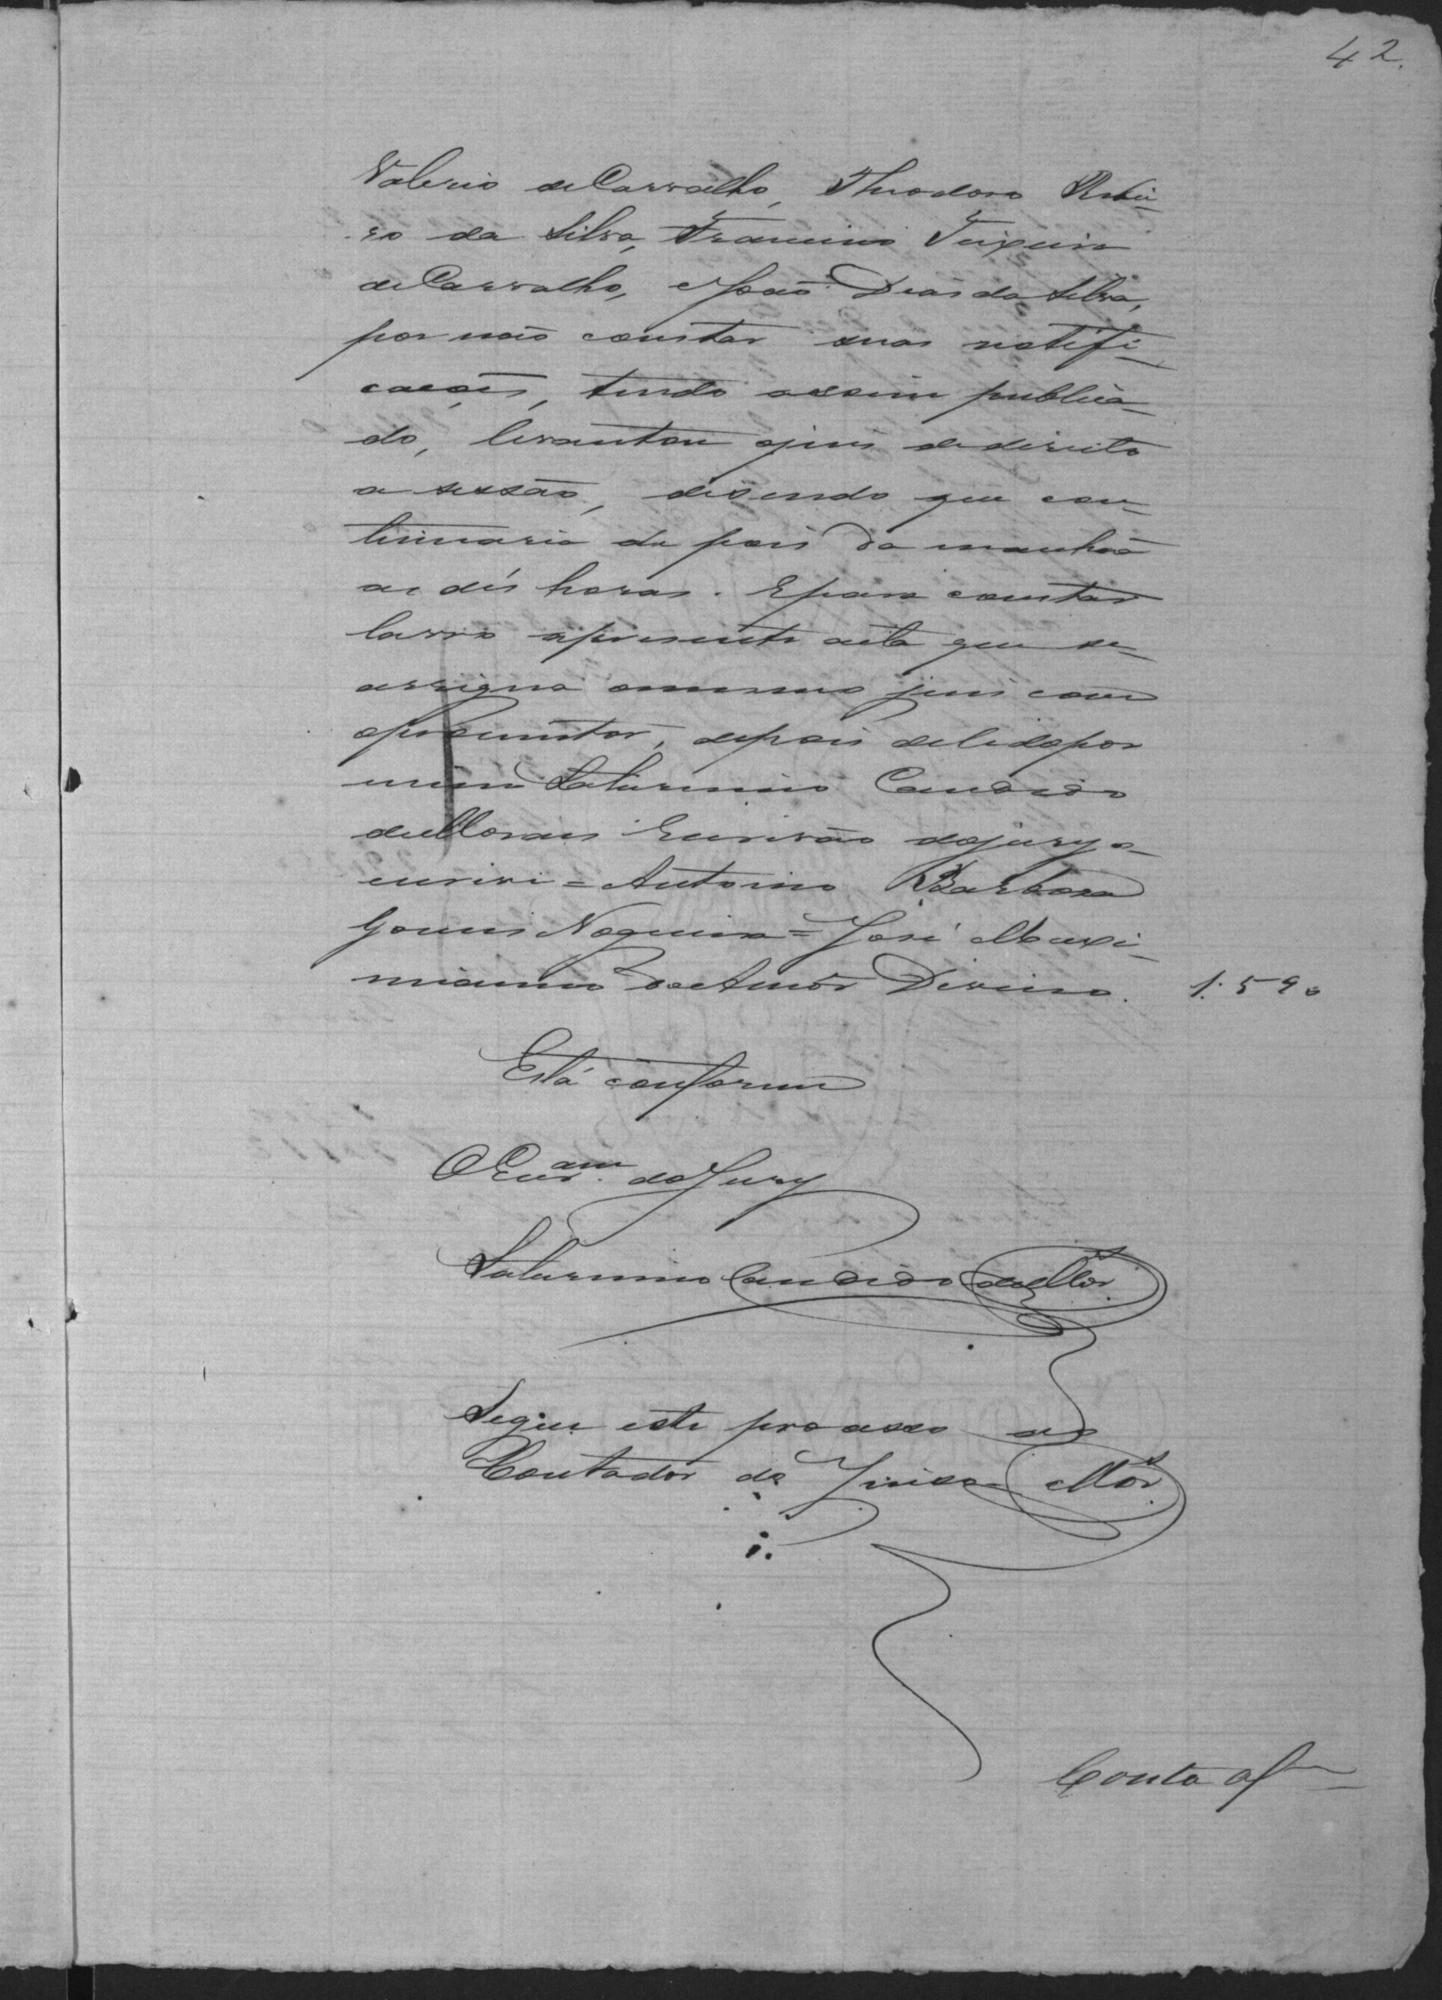 42.
Valerio de Carvalho, Theodoro Ribei-
ro da Silva, Francisco Teixeira
de Carvalho, e João Dias da Silva,
por não constar suas notifi-
cações, tendo assim publica-
do, levantou o juis de direito
a sessão, disendo que con-
tinuaria de pois da manhãa
as dés horas. E para constar
lavro a presente acta que se
assigna o mesmo juis com
o promotor, depois de lida por
mim Saturnino Candido
de Moraes Escrivão do jury o
escrivi = Antonio Barbosa
Gomes Nogueira = José Maxi-
mianno do Amôr Divino. 1:590
Está conforme
O Escr.am do Jury
Saturnino Candido de Mor.s
Segue este processo ao
Contador do Juiso Mor.s
Conta af